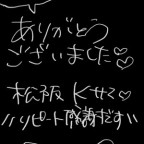 ありがとう
ございました♡♡
松阪 Kサマ♡
\\リピート感謝だす//